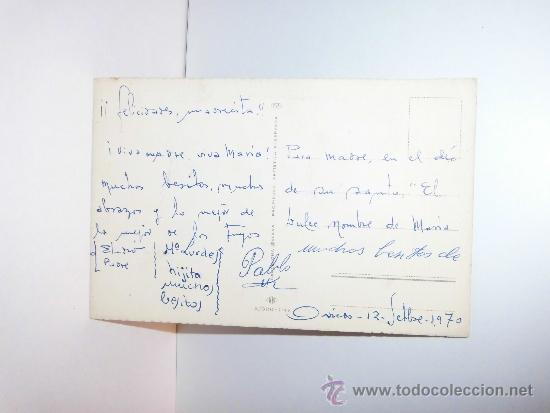 ¡¡ Felicidades, madrecita!!
¡Viva madre, viva María!
muchos besitos, muchos
abrazos y lo mejor de
lo mejor de los Fijos
Mª Lurdes
hijita
muchos
besitos
Pablo
Para madre, en el día
de su santo, "El
Dulce Nombre de María
muchos besitos de
12 - Setbre - 1970
www.todocoleccion.net